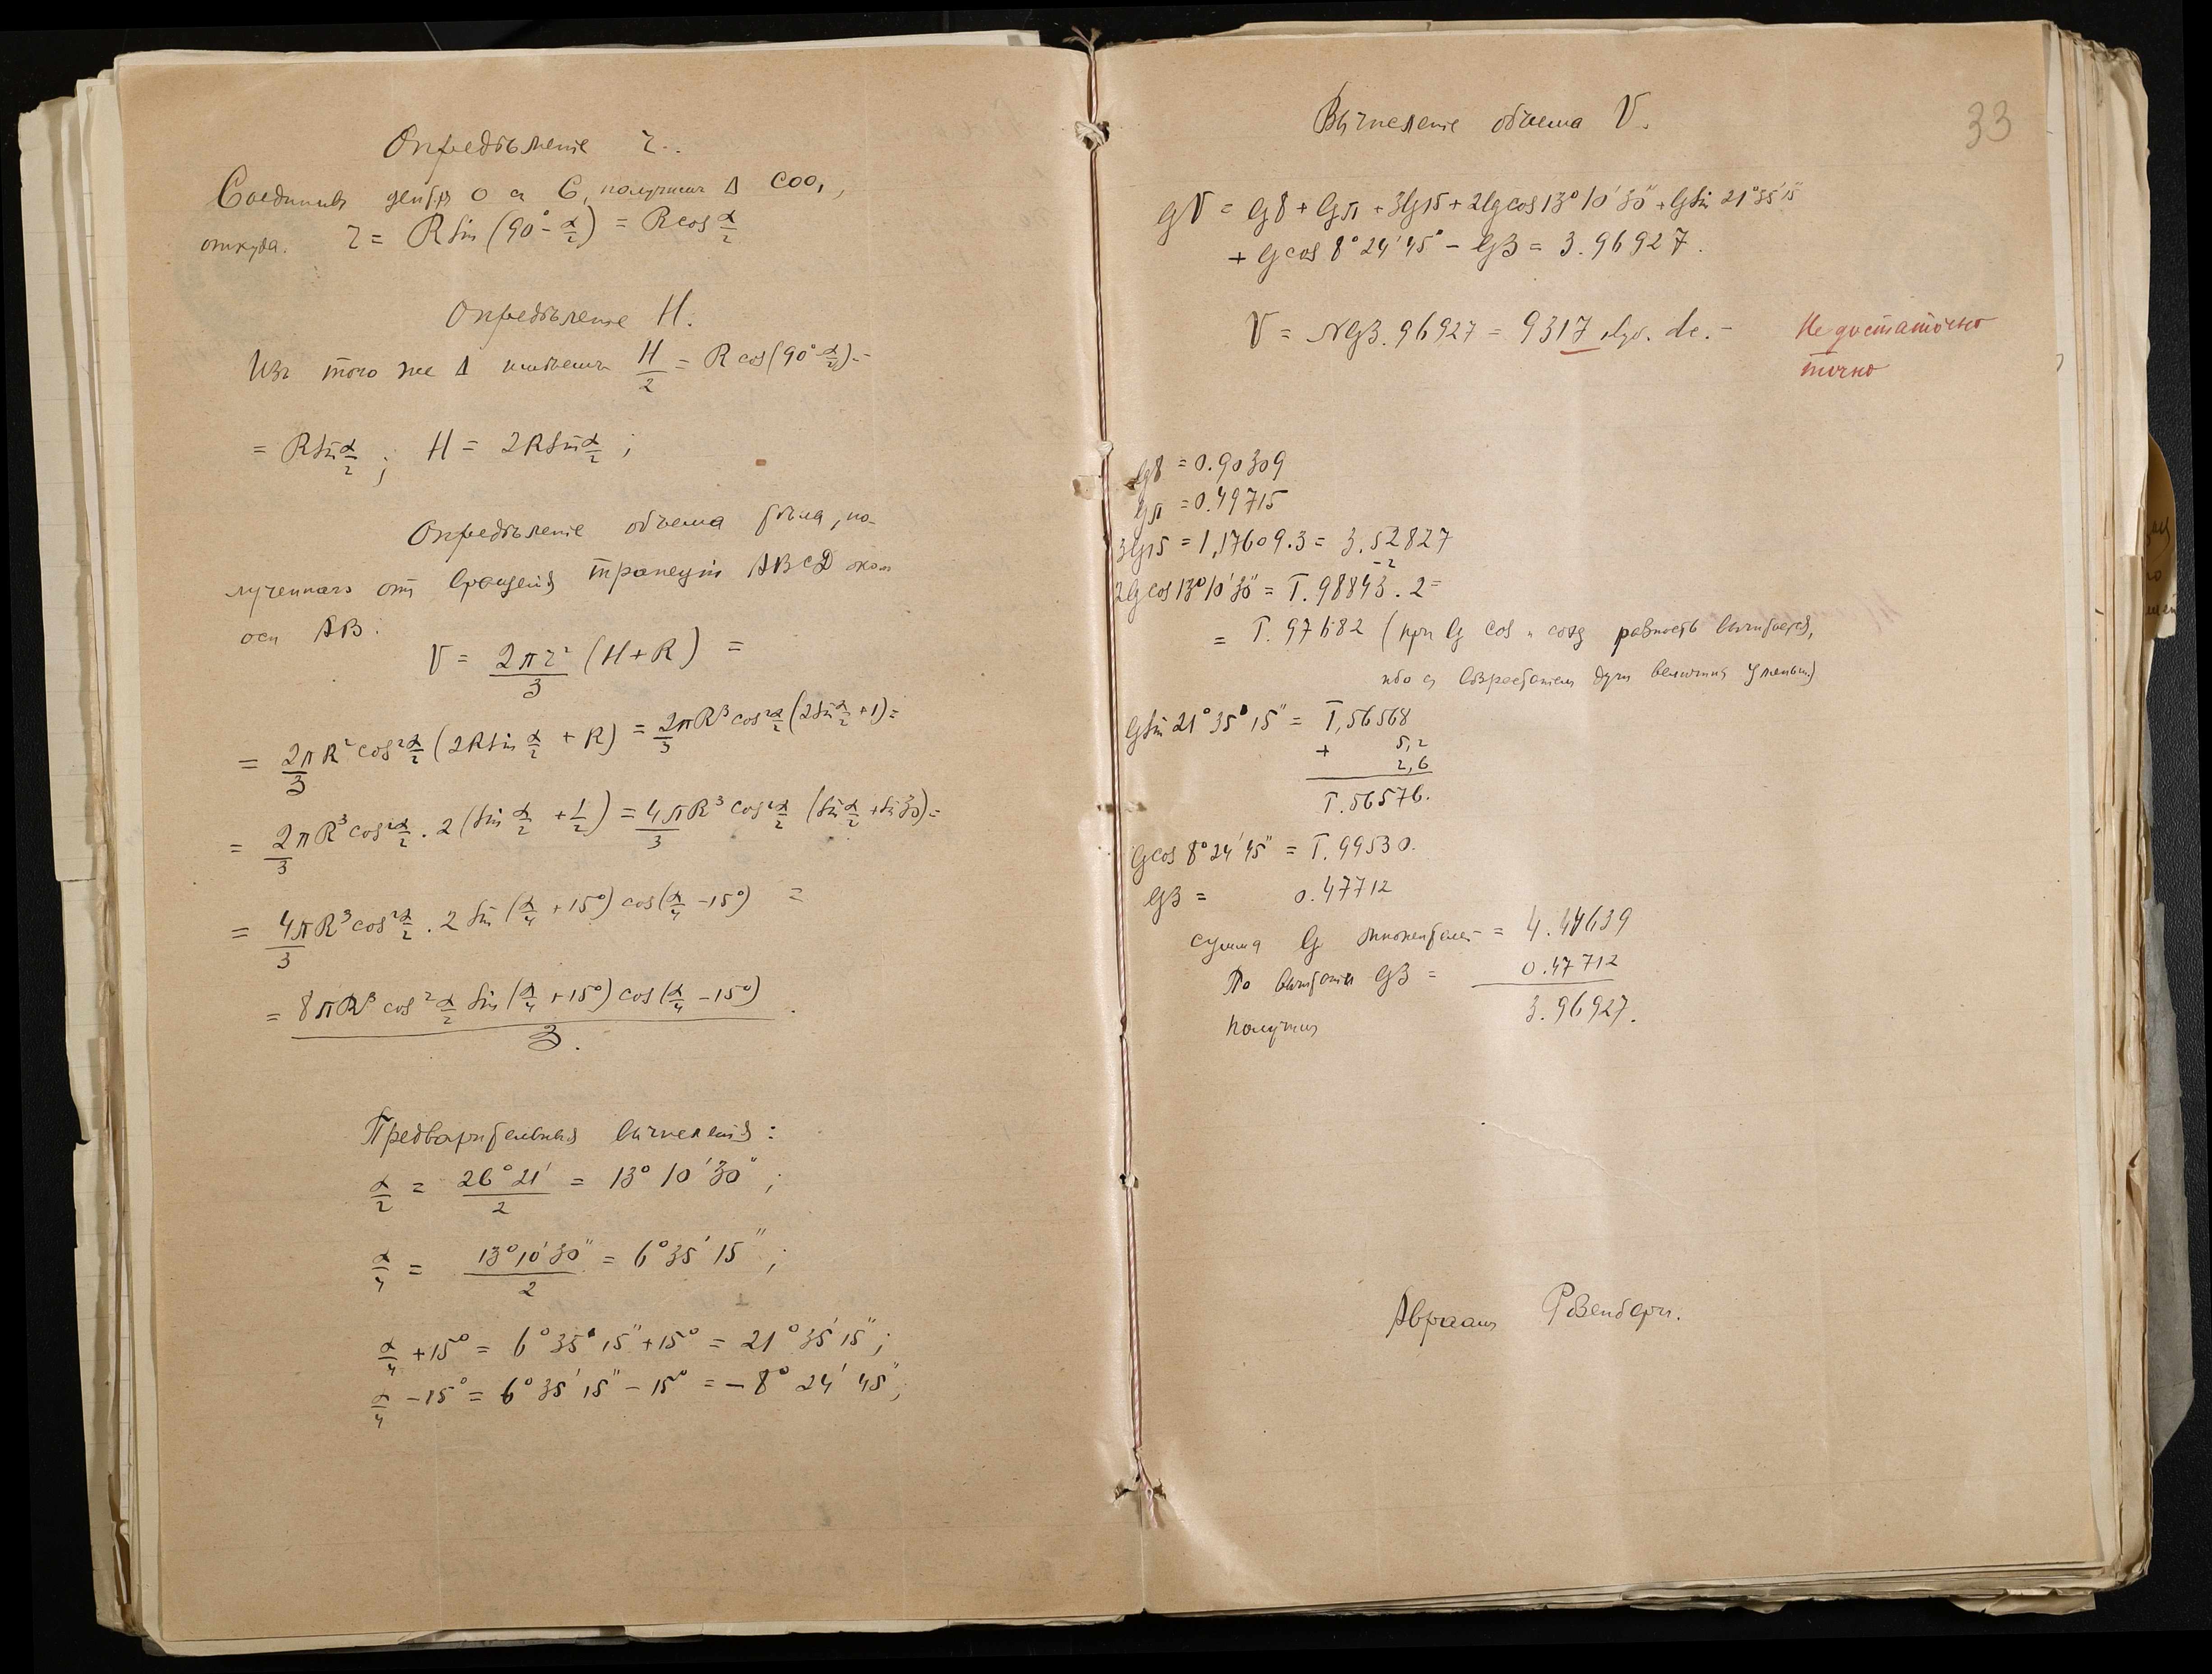 Опредѣленіе r.
Соединивъ центръ O съ C, получимъ Δ COO₁,
откуда r = R sin(90° - α/2) = R cos α/2
Опредѣленіе H.
Изъ того же Δ имѣемъ H/2 = R cos(90° - α/2) =
= R sin α/2 ; H = 2R sin α/2 ;
Опредѣленіе объема тѣла, по-
лученнаго отъ вращенія трапеціи ABCD около
оси AB:
V = 2πr²/3 (H+R) =
= 2/3 πR² cos² α/2 (2R sin α/2 + R) = 2/3 πR³ cos² α/2 (2 sin α/2 + 1) =
= 2/3 πR³ cos² α/2 . 2 (sin α/2 + 1/2) = 4/3 πR³ cos² α/2 (sin α/2 + sin 30) =
= 4/3 πR³ cos² α/2 . 2 sin (α/4 + 15°) cos(α/4 - 15°) =
= 8πR³ cos² α/2 sin (α/4 + 15°) cos(α/4 - 15°) / 3 .
Предварительныя вычисленія:
α/2 = 26°21'/2 = 13°10'30" ;
α/4 = 13°10'30"/2 = 6°35'15" ;
α/4 + 15° = 6°35'15" + 15° = 21°35'15" ;
α/4 - 15° = 6°35'15" - 15° = - 8°24'45" ;
33
Вычисленіе объема V.
lgV = lg8 + lgπ + 3lg15 + 2lgcos13°10'30" + lgsin 21°35'15"
+ lgcos 8°24'45" - lg3 = 3.96927.
V = Nlg3.96927 = 9317 куб. de. -
Не достаточно
точно
lg8 = 0.90309
lgπ = 0.49715
3lg15 = 1,17609.3 = 3.52827
-2
2lgcos13°10'30" = 1̅.98843 . 2 =
= 1̅.97682 (при lg cos и cotg разность вычитается,
ибо съ возростаніемъ дуги величина уменьш.)
lgsin 21°35'15" = 1̅,56568
+ 5,2
2,6
1̅.56576.
lgcos 8°24'45" = 1̅.99530.
lg3 = 0.47712
сумма lg множителей = 4.44639
По вычитаніи lg3 = 0.47712
получимъ 3.96927.
Авраамъ Розенбергъ.